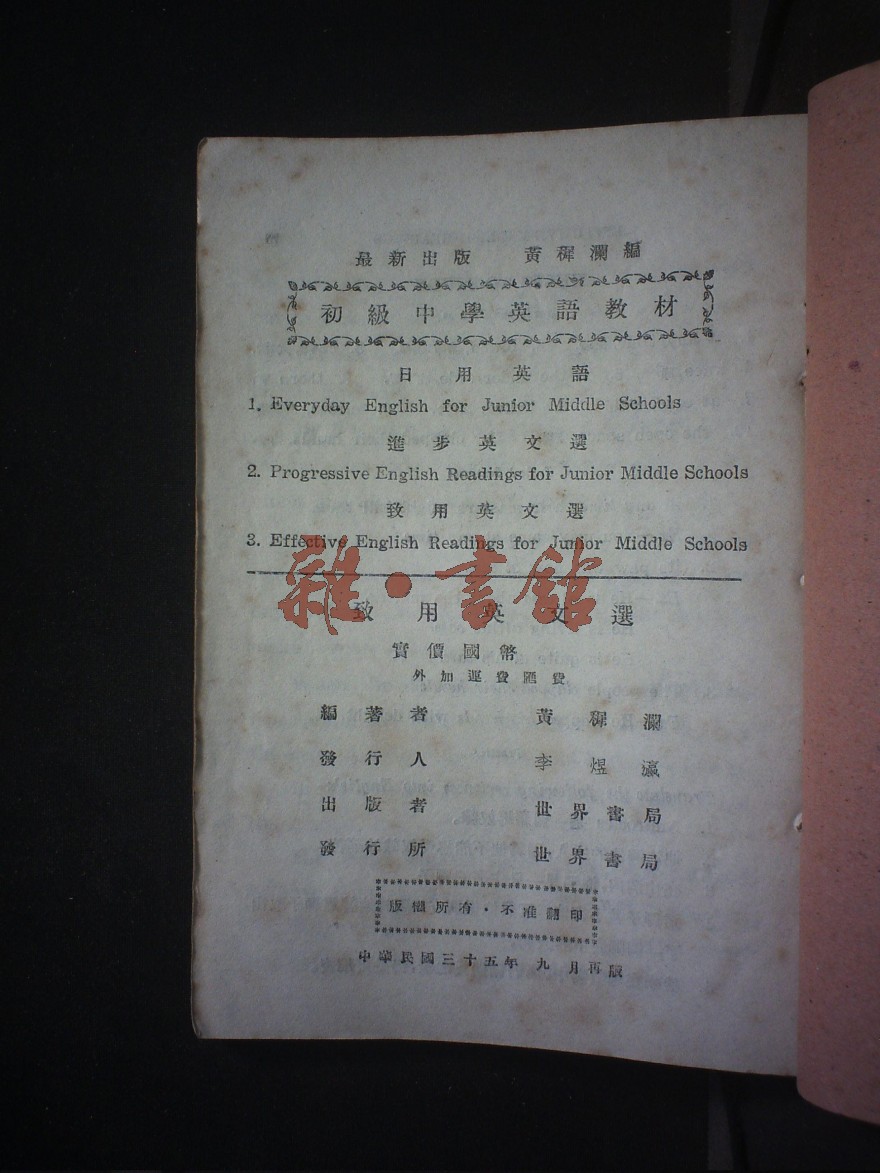 最新出版　黃穉瀾編
初級中學英語教材
日用英語
1. Everyday English for Junior Middle Schools
進步英文選
2. Progressive English Readings for Junior Middle Schools
致用英文選
3. Effective English Readings for Junior Middle Schools
雜·書館
致用英文選
實價國幣
外加運費匯費
編著者　黃穉瀾
發行人　李煜瀛
出版者　世界書局
發行所　世界書局
版權所有·不准翻印
中華民國三十五年九月再版